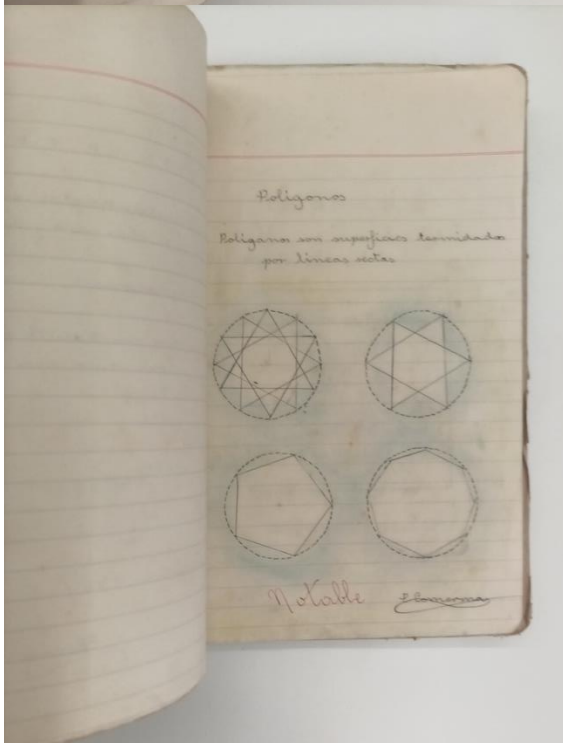 Poligonos
Poliganos son superficies termidados
por lineas rectas
Notable